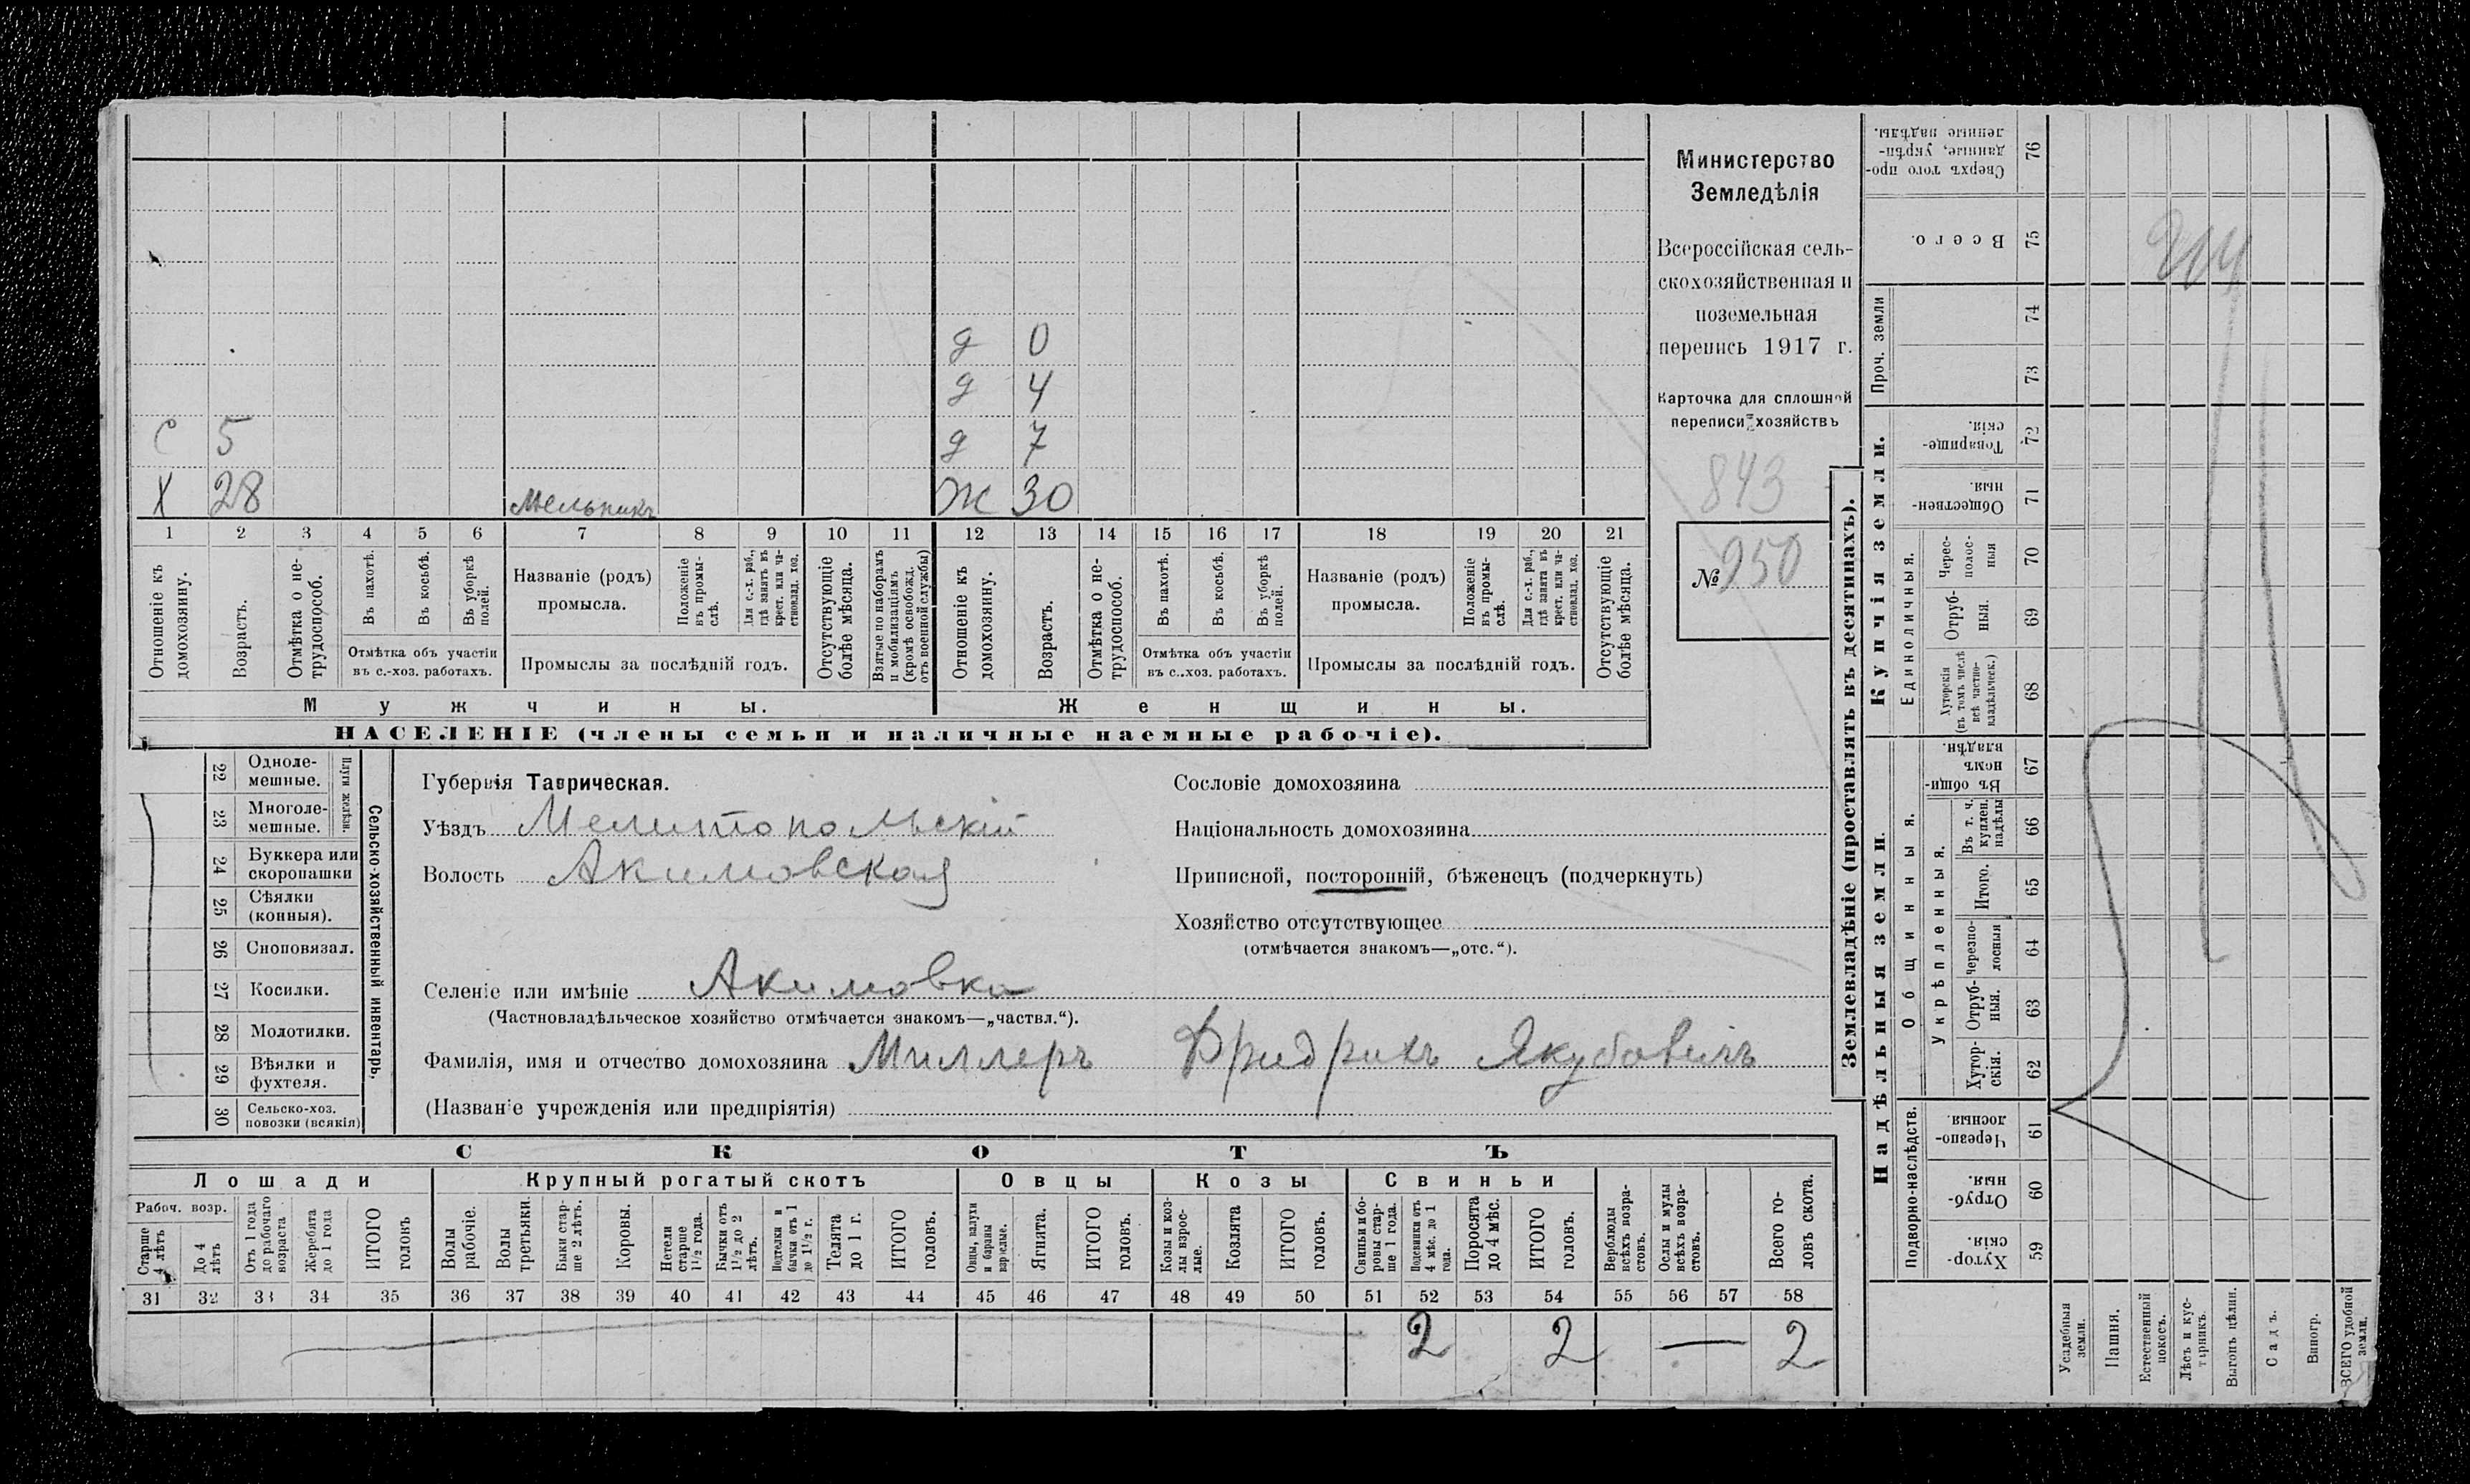 д 0
д 4
С 5 д 7
Х 28 Мельникъ Ж 30
1 2 3 4 5 6 7 8 9 10 11 12 13 14 15 16 17 18 19 20 21
Отношеніе къ домохозяину.
Возрастъ.
Отмѣтка о не-
трудоспособ.
Въ пахотѣ.
Въ косьбѣ.
Въ уборкѣ
полей.
Отмѣтка объ участіи
въ с.-хоз. работахъ.
Названіе (родъ)
промысла.
Положеніе
въ промы-
слѣ.
Для с.-х. раб.,
гдѣ занятъ въ
крест. или ча-
стновлад. хоз.
Промыслы за послѣдній годъ.
Отсутствующіе
болѣе мѣсяца.
Взятые по наборамъ
и мобилизаціямъ
(кромѣ освобожд.
отъ военной службы)
Отношеніе къ
домохозяину.
Возрастъ.
Отмѣтка о не-
трудоспособ.
Въ пахотѣ.
Въ косьбѣ.
Въ уборкѣ
полей.
Отмѣтка объ участіи
въ с..хоз. работахъ.
Названіе (родъ)
промысла.
Положеніе
въ промы-
слѣ.
Для с.-х. раб.,
гдѣ занята въ
крест. или ча-
стновлад. хоз.
Промыслы за послѣдній годъ.
Отсутствующіе
болѣе мѣсяца.
Мужчины. Женщины.
НАСЕЛЕНІЕ (члены семьи и наличные наемные рабочіе).
Министерство
Земледѣлія
Всероссійская сель-
скохозяйственная и
поземельная
перепись 1917 г.
Карточка для сплошной
переписи хозяйствъ
843
№ 950
22 Одноле-
мешные.
23 Многоле-
мешные.
Плуги желѣзн.
24 Буккера или
скоропашки
25 Сѣялки
(конныя).
26 Сноповязал.
27 Косилки.
28 Молотилки.
29 Вѣялки и
фухтеля.
30 Сельско-хоз.
повозки (всякія)
Сельско-хозяйственный инвентарь.
Губернія Таврическая.
Уѣздъ Мелитопольскій
Волость Акимовская
Селеніе или имѣніе Акимовка
(Частновладѣльческое хозяйство отмѣчается знакомъ—„частвл.“).
Фамилія, имя и отчество домохозяина Миллеръ Фридрихъ Якубовичъ
(Названіе учрежденія или предпріятія)
Сословіе домохозяина
Національность домохозяина
Приписной, посторонній, бѣженецъ (подчеркнуть)
Хозяйство отсутствующее
(отмѣчается знакомъ—„отс.“).
СКОТЪ
Лошади Крупный рогатый скотъ Овцы Козы Свиньи
Рабоч. возр.
Старше
4 лѣтъ
До 4
лѣтъ
Отъ 1 года
до рабочаго
возраста
Жеребята
до 1 года
ИТОГО
головъ
Волы
рабочіе.
Волы
третьяки.
Быки стар-
ше 2 лѣтъ.
Коровы.
Нетели
старше
1½ года.
Бычки отъ
1½ до 2
лѣтъ.
Подтелки и
бычки отъ 1
до 1½ г.
Телята
до 1 г.
ИТОГО
головъ.
Овцы, валухи
и бараны
взрослые.
Ягнята.
ИТОГО
головъ.
Козы и коз-
лы взрос-
лые.
Козлята
ИТОГО
головъ.
Свиньи и бо-
ровы стар-
ше 1 года.
Подсвинки отъ
4 мѣс. до 1
года.
Поросята
до 4 мѣс.
ИТОГО
головъ.
Верблюды
всѣхъ возра-
стовъ.
Ослы и мулы
всѣхъ возра-
стовъ.
Всего го-
ловъ скота.
31 32 33 34 35 36 37 38 39 40 41 42 43 44 45 46 47 48 49 50 51 52 53 54 55 56 57 58
2 2 — 2
Землевладѣніе (проставлять въ десятинахъ).
Надѣльныя земли.
Купчія земли.
Проч. земли
Подворно-наслѣдств.
Общинныя.
Укрѣпленныя.
Единоличныя.
Сверхъ того про-
данные, укрѣп-
ленные надѣлы.
76
Всего.
75
74
73
Товарище-
скія.
72
Обществен-
ныя.
71
Черес-
полос-
ныя
70
Отруб-
ныя.
69
Хуторскія
(въ томъ числѣ
всѣ частно-
владѣльческ.)
68
Въ общи-
номъ
владѣн.
67
Въ т. ч.
куплен.
надѣлы
66
Итого.
65
Черезпо-
лосныя
64
Отруб-
ныя.
63
Хутор-
скія.
62
Черезпо-
лосныя
61
Отруб-
ныя.
60
Хутор-
скія.
59
Усадебныя
земли.
Пашня.
Естественный
покосъ.
Лѣсъ и кус-
тарникъ.
Выгонъ цѣлин.
Садъ.
Виногр.
ВСЕГО удобной
земли.